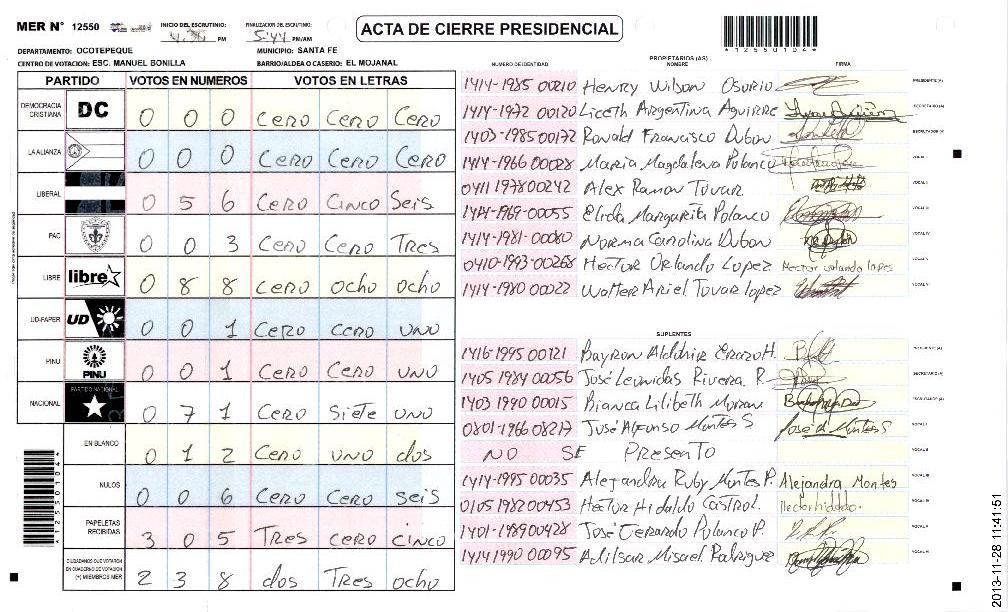 MER N° 12550 INICIO DEL ESCRUTINIO: 4:36 PM FINALIZACION DEL ESCRUTINIO: 5:44 PM/AM
ACTA DE CIERRE PRESIDENCIAL
*12550104*
DEPARTAMENTO: OCOTEPEQUE MUNICIPIO: SANTA FE
CENTRO DE VOTACION: ESC. MANUEL BONILLA BARRIO/ALDEA O CASERIO: EL MOJANAL
PARTIDO VOTOS EN NUMEROS VOTOS EN LETRAS
DEMOCRACIA CRISTIANA DC 0 0 0 CERO CERO CERO
LA ALIANZA 0 0 0 CERO CERO CERO
LIBERAL 0 5 6 CERO CINCO SEIS
PAC 0 0 3 CERO CERO TRES
LIBRE libre 0 8 8 CERO OCHO OCHO
UD-FAPER UD 0 0 1 CERO CERO UNO
PINU PINU 0 0 1 CERO CERO UNO
NACIONAL PARTIDO NACIONAL 0 7 1 CERO SIETE UNO
EN BLANCO 0 1 2 CERO UNO dos
NULOS 0 0 6 CERO CERO SEIS
PAPELETAS RECIBIDAS 3 0 5 TRES CERO CINCO
CIUDADANOS QUE VOTARON EN CUADERNO DE VOTACION (+) MIEMBROS MER 2 3 8 dos TRES ocho
*12550104*
PROPIETARIOS (AS)
NUMERO DE IDENTIDAD NOMBRE FIRMA
1414-1985 00210 Henry Wilson Osorio PRESIDENTE(A)
1414-1972 00120 Liceth Argentina Aguirre SECRETARIO(A)
1403-1985 00172 Ronald Francisco Dubon ESCRUTADOR(A)
1414-1966 00028 Maria Magdalena Polanco VOCAL I
0411 1978 00242 Alex Ramon Tovar VOCAL II
1414-1969-00055 Elida Margarita Polanco VOCAL III
1414-1981-00080 Norma Carolina Dubon VOCAL IV
0410-1993-00268 Hector Orlando Lopez Hector orlando lopes VOCAL V
1414-1980 00022 Walter Ariel Tovar lopez VOCAL VI
SUPLENTES
1416-1995 00121 Bayron Aldahir Erazo H. PRESIDENTE(A)
1405 1984 00056 José Leonidas Rivera R. SECRETARIO(A)
1403 1990 00015 Bianca Lilibeth Moran ESCRUTADOR(A)
0801-1966 08217 José Alfonso Montes S José A Montes S VOCAL I
NO SE PRESENTO VOCAL II
1414-1995 00035 Alejandra Ruby Montes P. Alejandra Montes VOCAL III
0105 1982 00453 Hector Hidaldo Castro l. Hector hidaldo. VOCAL IV
1401-1989 00428 José Gerardo Polanco P. VOCAL V
1414 1990 00095 Adilsar Misael Rodriguez VOCAL VI
2013-11-28 11:41:51